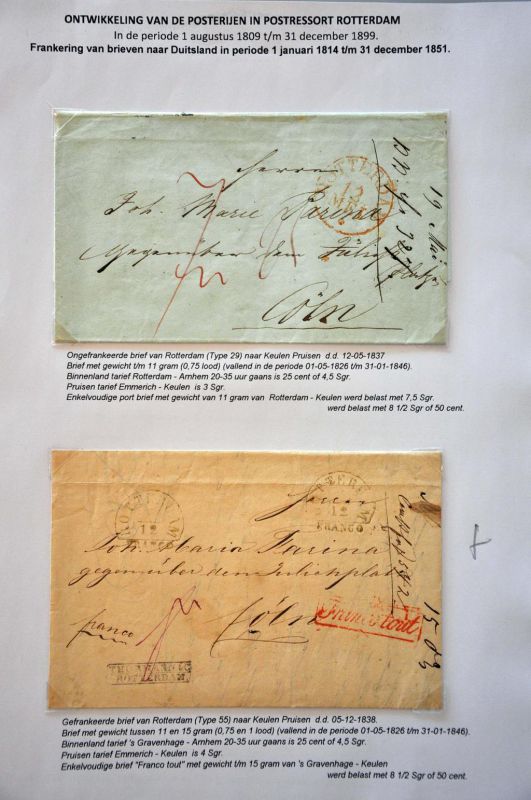 ONTWIKKELING VAN DE POSTERIJEN IN POSTRESSORT ROTTERDAM
In de periode 1 augustus 1809 t/m 31 december 1899.
Frankering van brieven naar Duitsland in periode 1 januari 1814 t/m 31 december 1851.
Herrn
ROTTERDAM
Joh. Marie Farina
gegenüber dem Jülichs
platz
Cöln
19 Mai
Ongefrankeerde brief van Rotterdam (Type 29) naar Keulen Pruisen d.d. 12-05-1837
Brief met gewicht t/m 11 gram (0,75 lood) (vallend in de periode 01-05-1826 t/m 31-01-1846).
Binnenland tarief Rotterdam - Arnhem 20-35 uur gaans is 25 cent of 4,5 Sgr.
Pruisen tarief Emmerich - Keulen is 3 Sgr.
Enkelvoudige port brief met gewicht van 11 gram van Rotterdam - Keulen werd belast met 7,5 Sgr.
werd belast met 8 1/2 Sgr of 50 cent.
ROTTERDAM
12
FRANCO
ROTTERDAM
12
FRANCO
Herrn
Joh. Maria Farina
gegenüber dem Julichplatz
Cöln
franco
Franco tout
ROTTERDAM
Gefrankeerde brief van Rotterdam (Type 55) naar Keulen Pruisen d.d. 05-12-1838.
Brief met gewicht tussen 11 en 15 gram (0,75 en 1 lood) (vallend in de periode 01-05-1826 t/m 31-01-1846).
Binnenland tarief 's Gravenhage - Arnhem 20-35 uur gaans is 25 cent of 4,5 Sgr.
Pruisen tarief Emmerich - Keulen is 4 Sgr.
Enkelvoudige brief "Franco tout" met gewicht t/m 15 gram van 's Gravenhage - Keulen
werd belast met 8 1/2 Sgr of 50 cent.